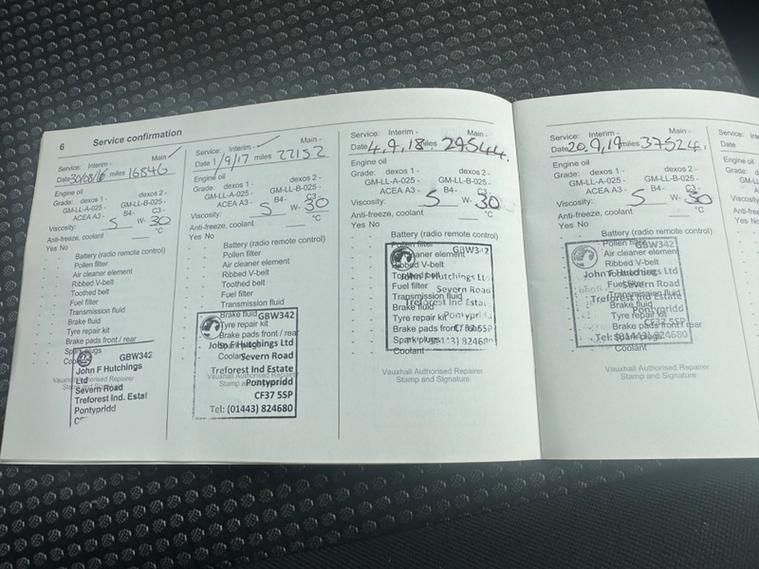 6 Service confirmation
Service: Interim - Main -
Date 30/08/16 miles 16846
Engine oil
Grade: dexos 1 - dexos 2 -
GM-LL-A-025 - GM-LL-B-025 -
ACEA A3 - B4- C3 -
Viscosity: 5 W- 30
Anti-freeze, coolant °C
Yes No
Battery (radio remote control)
Pollen filter
Air cleaner element
Ribbed V-belt
Toothed belt
Fuel filter
Transmission fluid
Brake fluid
Tyre repair kit
Brake pads front / rear
Spark plugs
GBW342
John F Hutchings
Ltd
Severn Road
Treforest Ind. Estat
Pontypridd
Service: Interim - Main -
Date 1/9/17 miles 22152
Engine oil
Grade: dexos 1 - dexos 2 -
GM-LL-A-025 - GM-LL-B-025 -
ACEA A3 - B4- C3 -
Viscosity: 5 W- 30
Anti-freeze, coolant °C
Yes No
Battery (radio remote control)
Pollen filter
Air cleaner element
Ribbed V-belt
Toothed belt
Fuel filter
Transmission fluid
Brake fluid
GBW342
Tyre repair kit
Brake pads front / rear
John F Hutchings Ltd
Coolant
Severn Road
Treforest Ind Estate
Pontypridd
CF37 5SP
Tel: (01443) 824680
Service: Interim - Main -
Date 4,9,18 miles 29544
Engine oil
Grade: dexos 1 - dexos 2 -
GM-LL-A-025 - GM-LL-B-025 -
ACEA A3 - B4- C3 -
Viscosity: 5 W- 30
Anti-freeze, coolant °C
Yes No
Battery (radio remote control)
Pollen filter
GBW342
Air cleaner element
Ribbed V-belt
Toothed belt
Hutchings Ltd
Fuel filter
Severn Road
Transmission fluid
Treforest Ind Estat
Brake fluid
Tyre repair kit
Pontypridd
Brake pads front / rear
CF37 5SP
Spark plugs
Coolant
Vauxhall Authorised Repairer
Stamp and Signature
Service: Interim - Main -
Date 20,9,19 miles 37524
Engine oil
Grade: dexos 1 - dexos 2 -
GM-LL-A-025 - GM-LL-B-025 -
ACEA A3 - B4- C3 -
Viscosity: 5 W- 30
Anti-freeze, coolant °C
Yes No
Battery (radio remote control)
Pollen filter
GBW342
Air cleaner element
Ribbed V-belt
John F Hutchings Ltd
Fuel filter
Severn Road
Transmission fluid
Treforest Ind Estate
Brake fluid
Pontypridd
Tyre repair kit
Brake pads front / rear
Spark plugs
Tel: (01443) 824680
Coolant
Vauxhall Authorised Repairer
Stamp and Signature
Service:
Date
Engine oil
Grade:
Viscosity:
Yes No